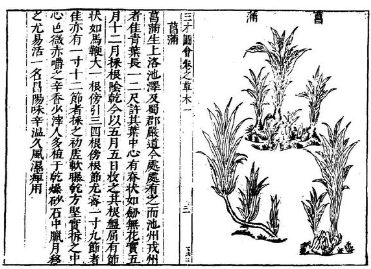 菖
蒲
三才圖會 草木一
菖蒲
菖蒲生上洛池澤及蜀郡嚴道今處處有之而池州戎州
者佳青葉長一二尺許其葉中心有脊狀如劒無花實五
月十二月採根陰乾今以五月五日收之其根盤屈有節
狀如馬鞭大一根傍引三四根傍根節尤密一寸九節者
佳亦有一寸十二節者採之初虛軟曝乾方堅實折之中
心色微赤嚼之辛香少滓人多植于乾燥砂石中臘月移
之尤易活一名昌陽味辛溫久風濕痺用